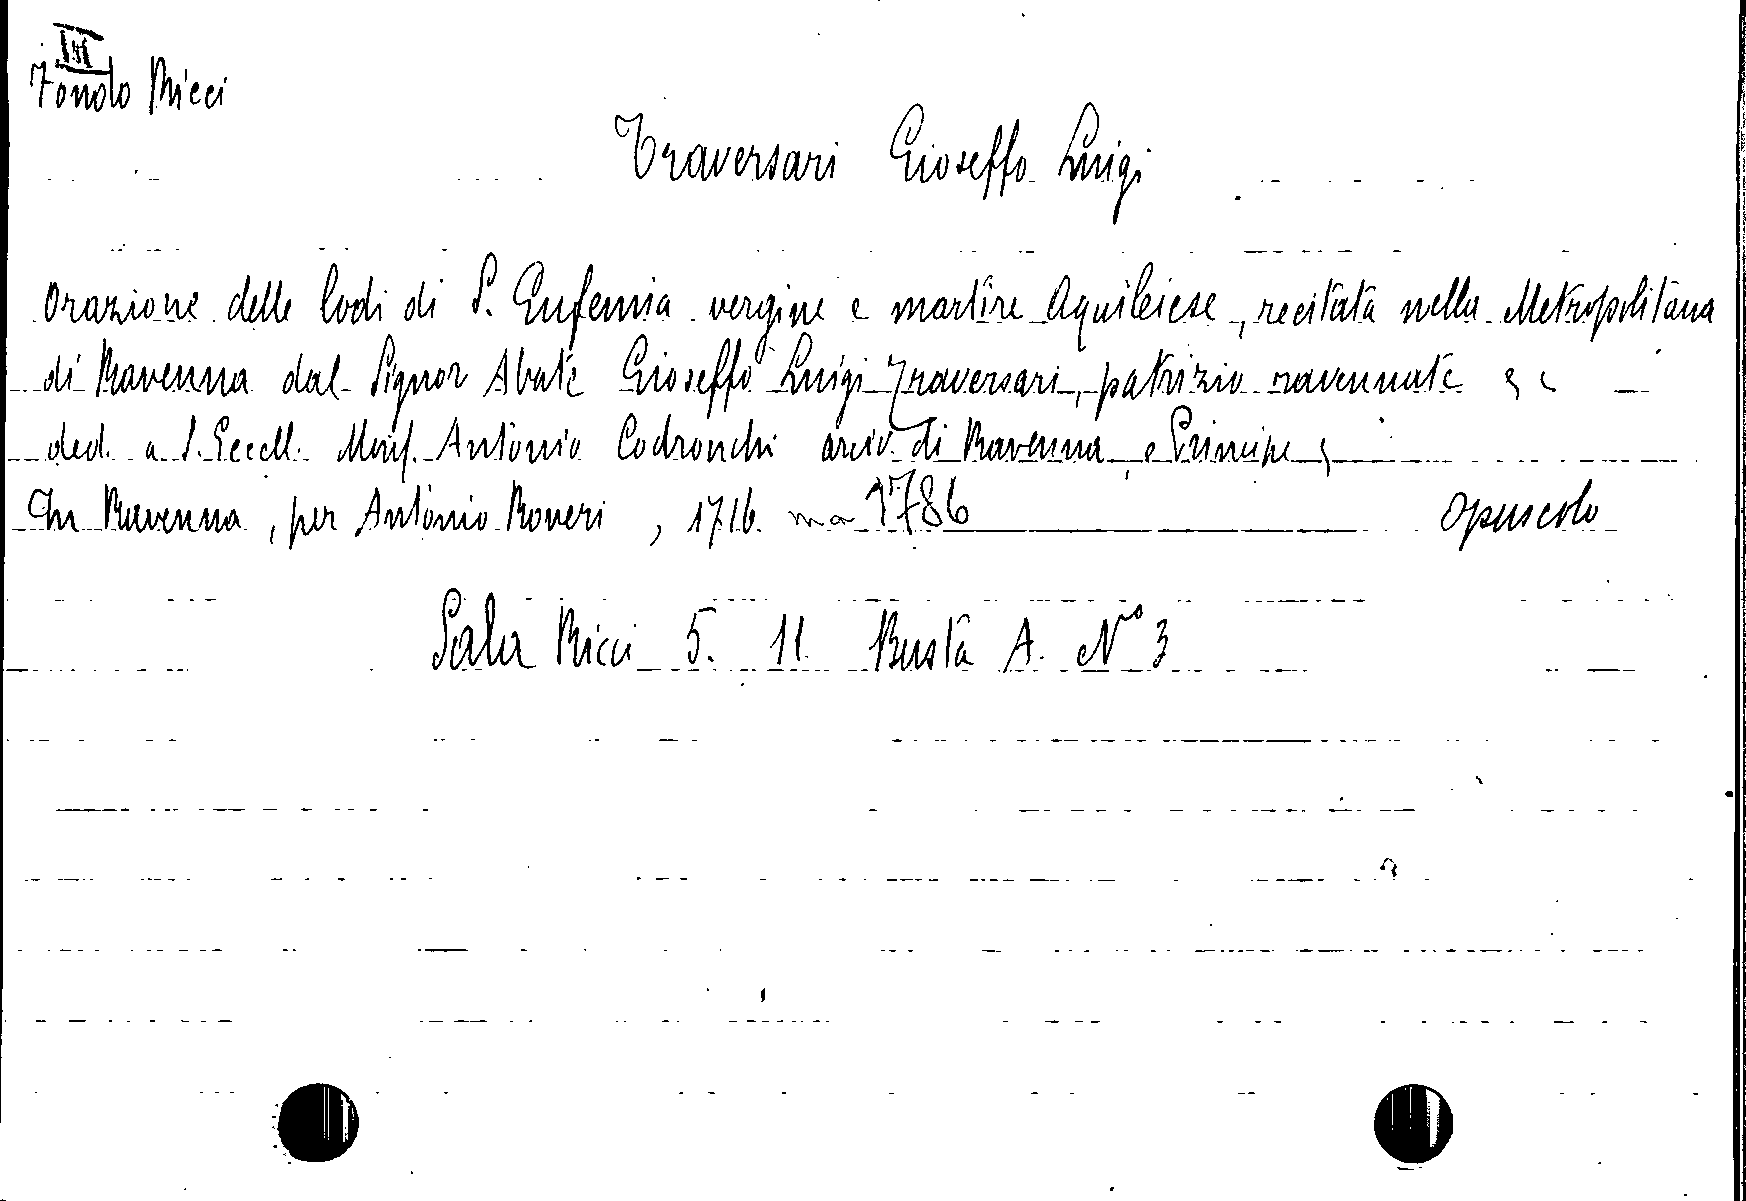 III
Fondo Ricci
Traversari Gioseffo Luigi
Orazione delle lodi di S. Eufemia vergine e martire Aquileiese, recitata nella Metropolitana
di Ravenna dal Signor Abate Gioseffo Luigi Traversari, patrizio ravennate &c
ded. a S. Eccell. Monf. Antonio Codronchi arciv. di Ravenna, e Principe &
In Ravenna, per Antonio Roveri, 1716. ma 1786 opuscolo
Sala Ricci 5. 11 Busta A. N° 3